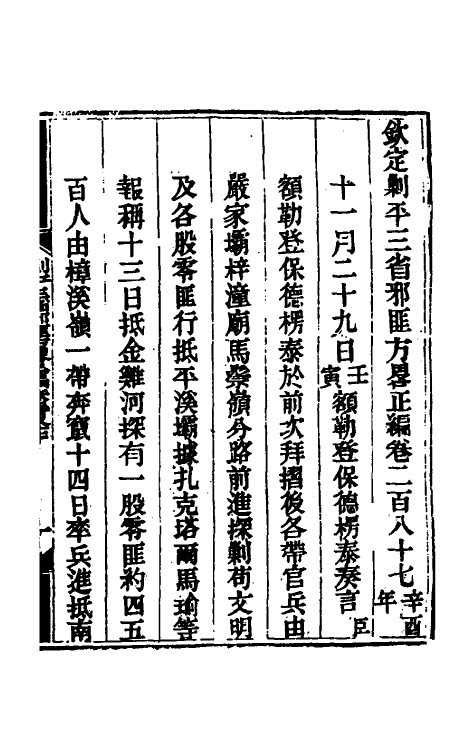 欽定剿平三省邪匪方畧正編卷二百八十七辛酉年
十一月二十九日壬寅額勒登保德楞泰奏言臣
額勒登保德楞泰於前次拜摺後各帶官兵由
嚴家壩梓潼廟馬鬃嶺分路前進探剿苟文明
及各股零匪行抵平溪壩據扎克塔爾馬瑜等
報稱十三日抵金雞河探有一股零匪約四五
百人由樟溪嶺一帶奔竄十四日率兵進抵南